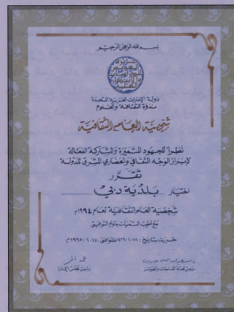 بسم الله الرحمن الرحيم
دولة الإمارات العربية المتحدة
ندوة الثقافة والعلوم
شخصية العام الثقافية
نظراً للجهود المتميزة والمشاركة الفعالة
لإبراز الوجه الثقافي والحضاري المشرق للدولة
تقرر
اختيار بلدية دبي
شخصية العام الثقافية لعام ١٩٩٤م
مع أطيب التمنيات بدوام التوفيق